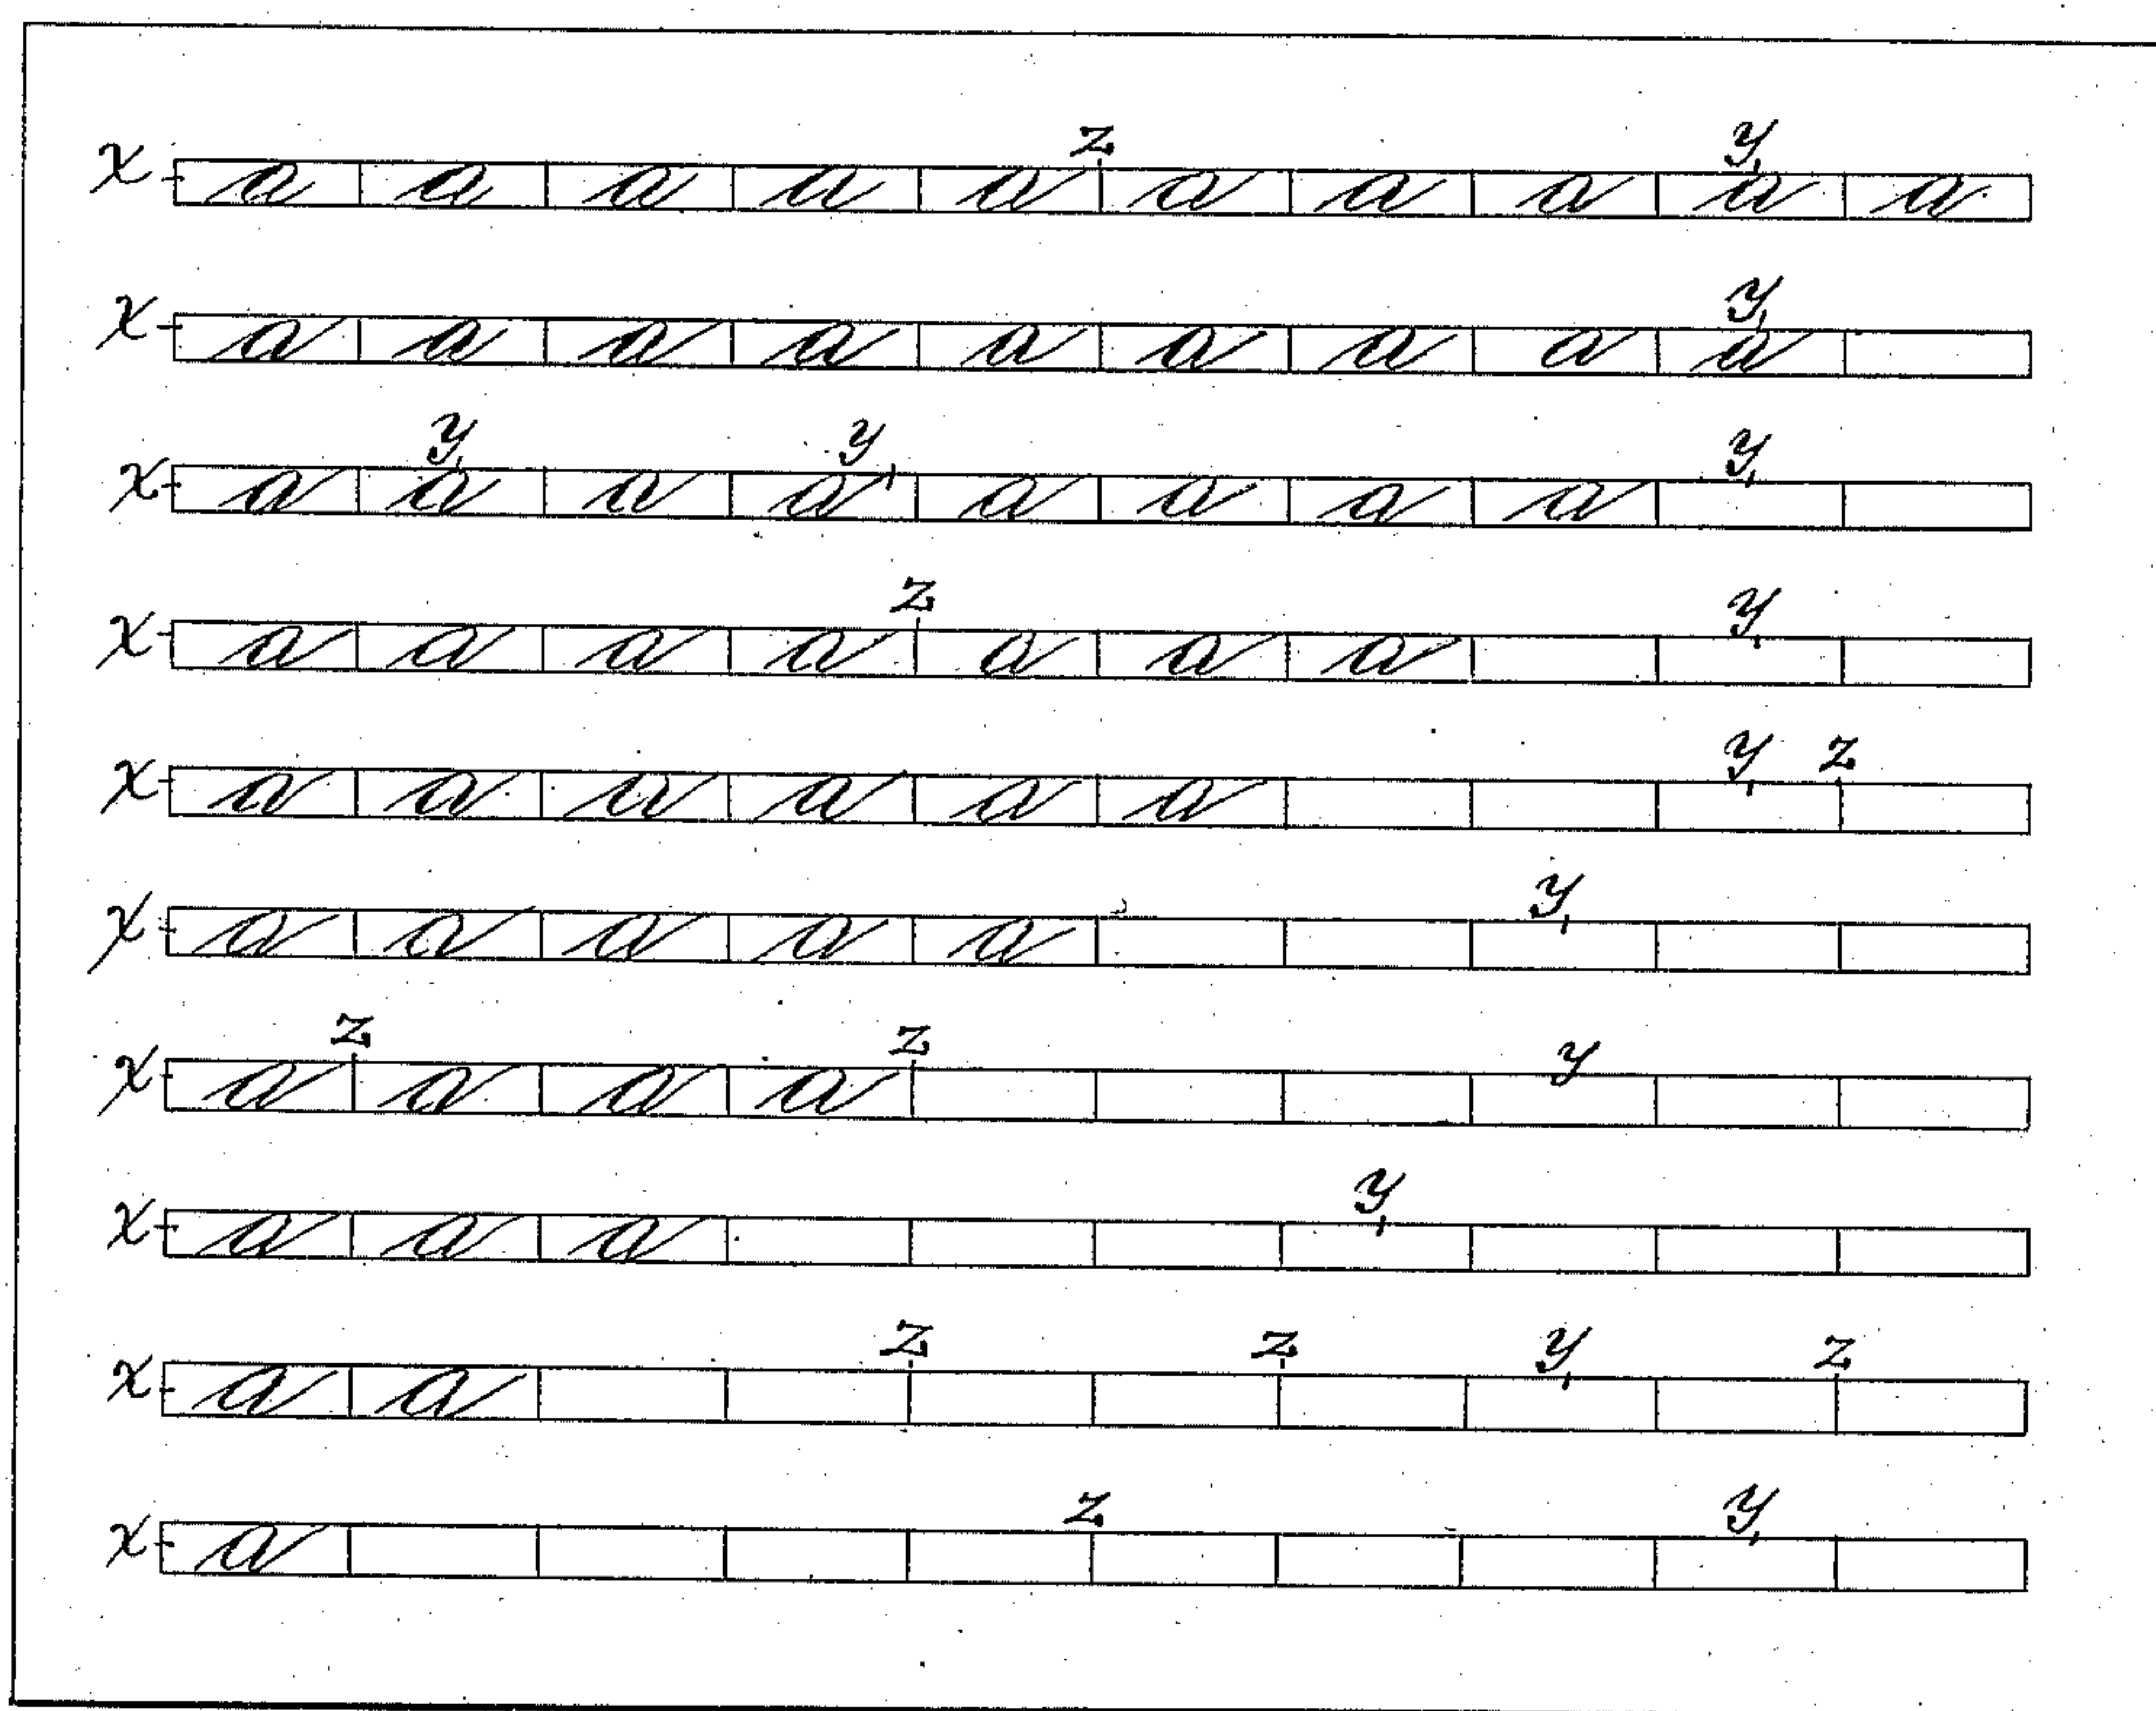 z y
x a a a a a a a a a a
y
x a a a a a a a a a
y y y
x a a a a a a a a
z y
x a a a a a a a
y z
x a a a a a a
y
x a a a a a
z z y
x a a a a
y
x a a a
z z y z
x a a
z y
x a